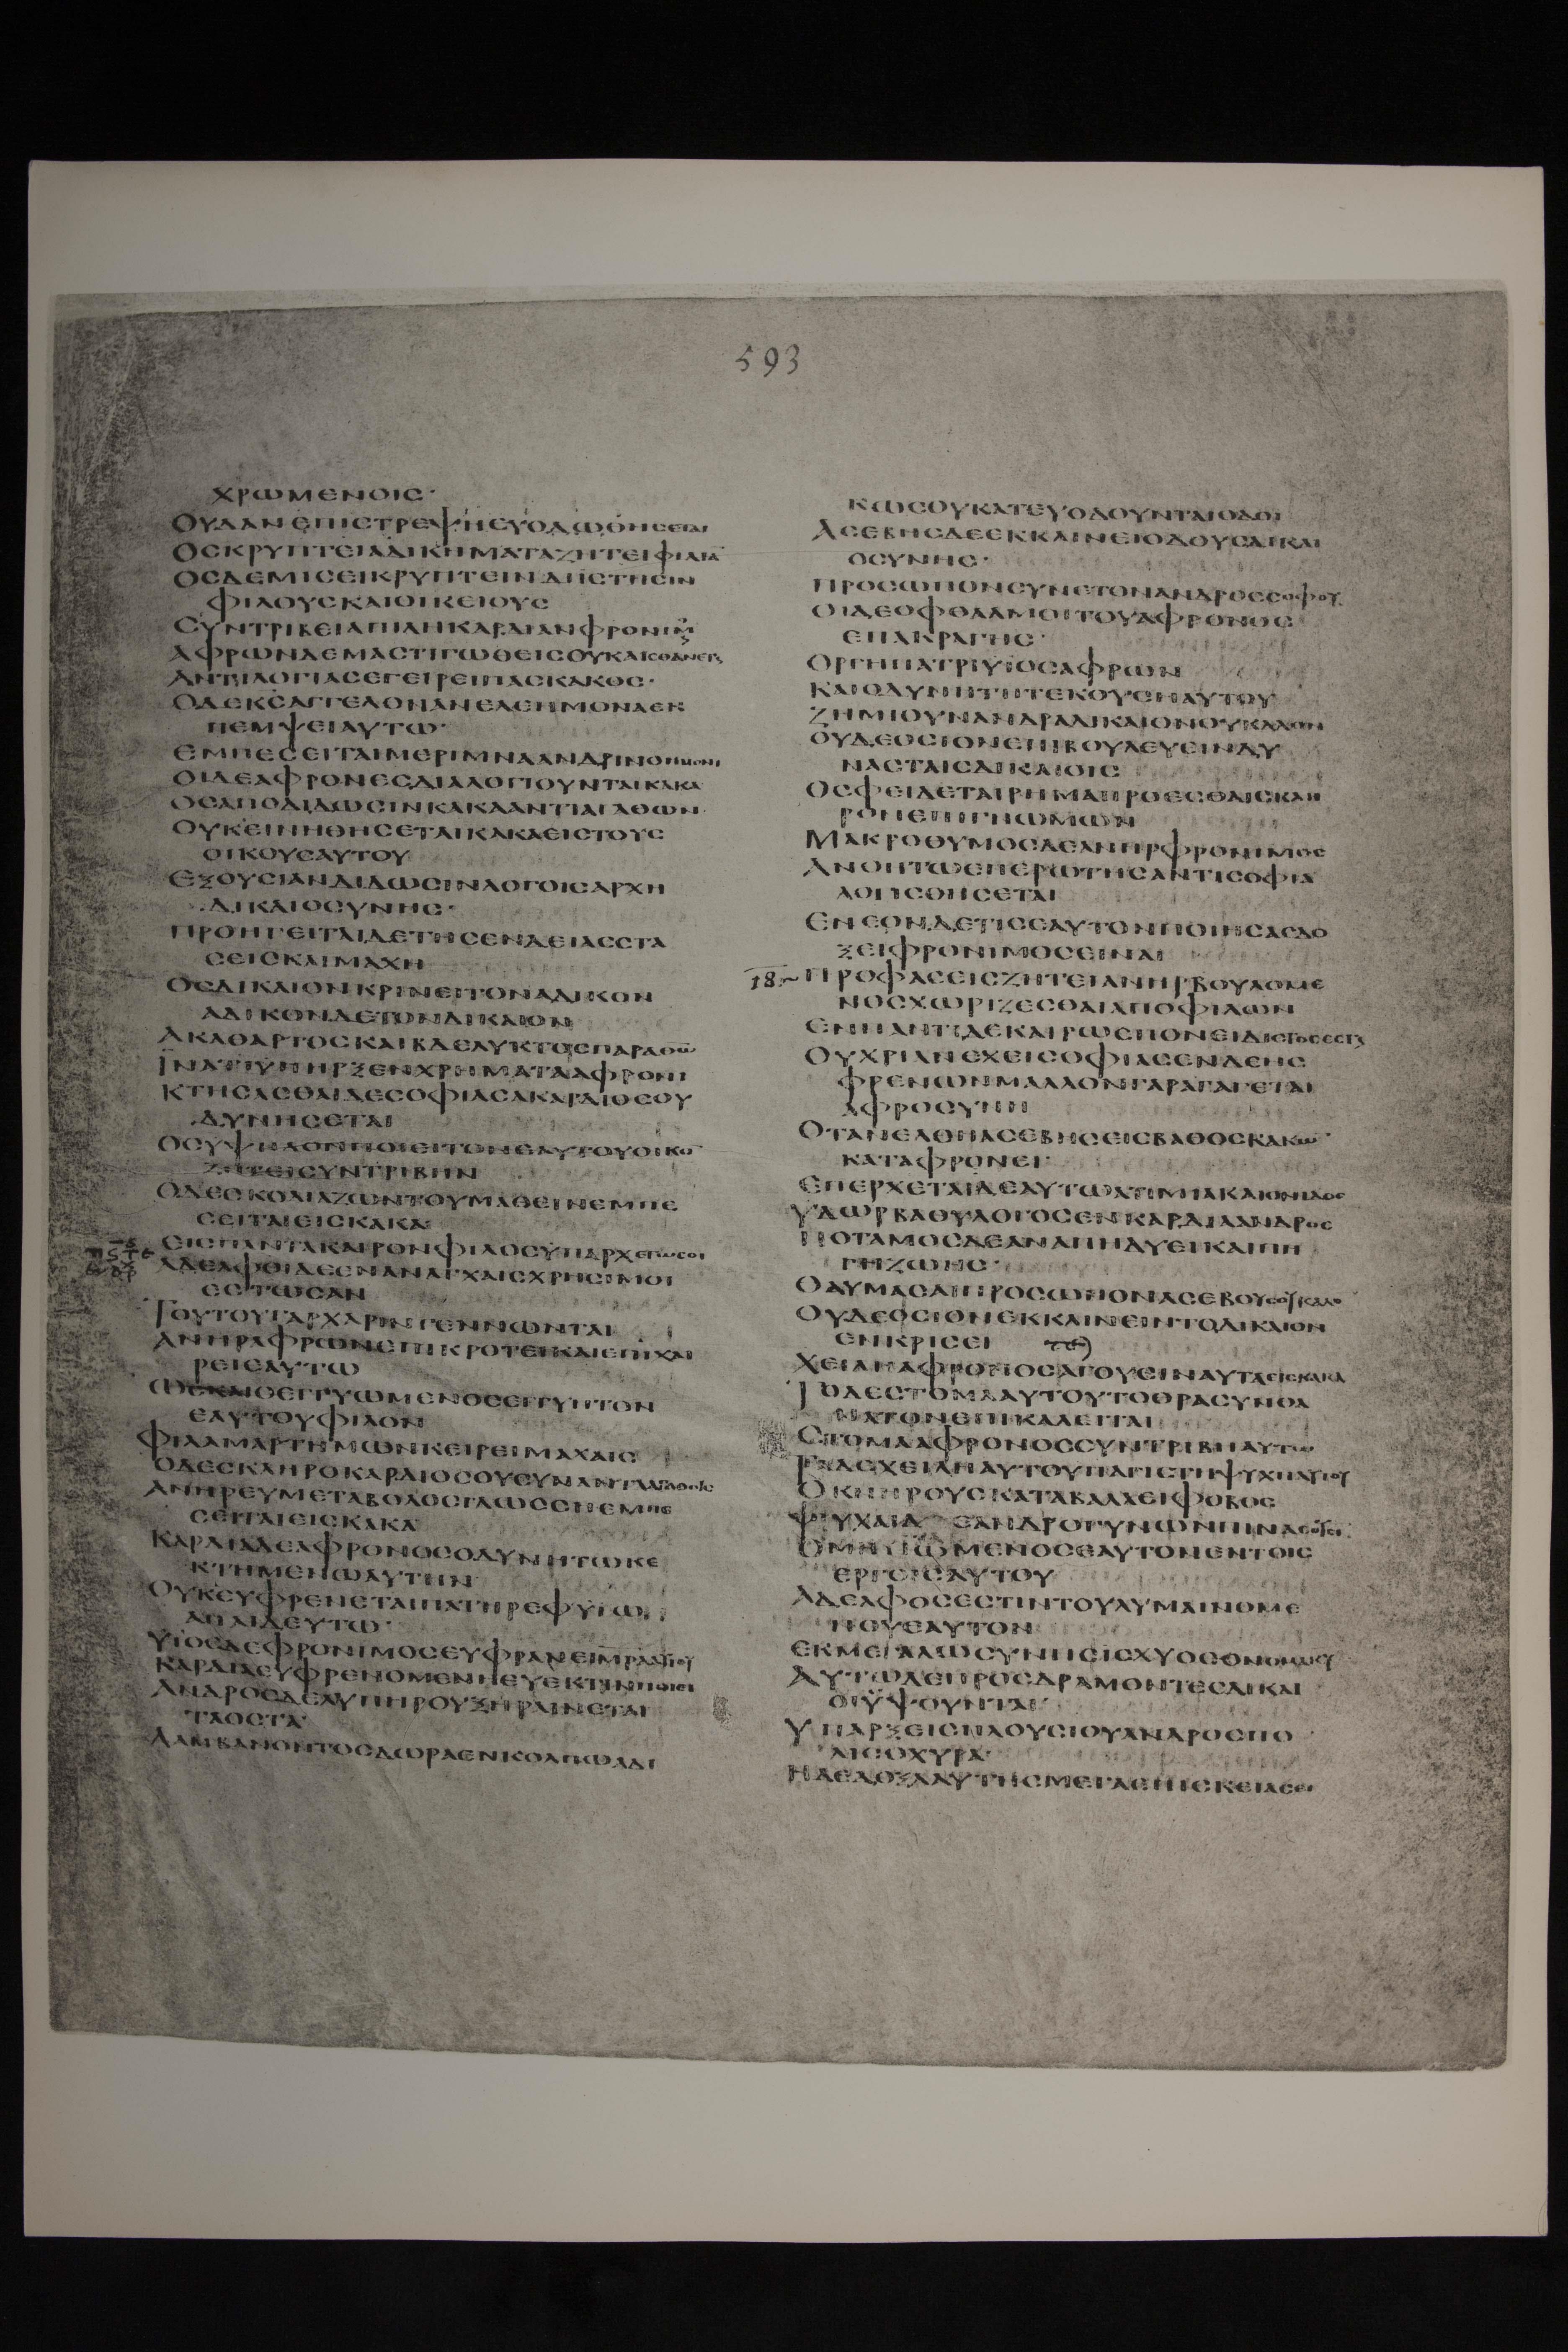 593
ΧΡΩΜΕΝΟΙC·
ΟΥΔΑΝΕΠΙCΤΡΕΨΗCΥΟΔΩΘΗCΕΤΑΙ
ΟCΚΡΥΠΤΕΙΑΔΙΚΗΜΑΤΑΖΗΤΕΙΦΙΛΙΑ̅
ΟCΔΕΜΙCΕΙΚΡΥΠΤΕΙΝΔΙΙCΤΗCΙΝ
ΦΙΛΟΥCΚΑΙΟΙΚΕΙΟΥC
CΥΝΤΡΙΒΕΙΑΠΙΛΗΚΑΡΔΙΑΝΦΡΟΝΙΜ
ΑΦΡΩΝΔΕΜΑCΤΙΓΩΘΕΙCΟΥΚΑΙCΘΑΝΕΤ
ΑΝΤΙΛΟΓΙΑCΕΓΕΙΡΕΙΠΑCΚΑΚΟC·
ΟΔΕΚCΑΓΓΕΛΟΝΑΝΕΛΕΗΜΟΝΑΕΚ
ΠΕΜΨΕΙΑΥΤΩ·
ΕΜΠΕCΕΙΤΑΙΜΕΡΙΜΝΑΑΝΔΡΙΝΟΗΜΟΝΙ
ΟΙΔΕΑΦΡΟΝΕCΔΙΑΛΟΓΙΟΥΝΤΑΙΚΑΚΑ
ΟCΑΠΟΔΙΔΩCΙΝΚΑΚΑΑΝΤΙΑΓΑΘΩΝ
ΟΥΚΕΙΝΗΘΗCΕΤΑΙΚΑΚΑΕΙCΤΟΥC
ΟΙΚΟΥCΑΥΤΟΥ
ΕΞΟΥCΙΑΝΔΙΔΩCΙΝΛΟΓΟΙCΑΡΧΗ
ΔΙΚΑΙΟCΥΝΗC·
ΠΡΟΗΓΕΙΤΑΙΔΕΤΗCΕΝΔΕΙΑCCΤΑ
CΕΙCΚΑΙΜΑΧΗ
ΟCΔΙΚΑΙΟΝΚΡΙΝΕΙΤΟΝΑΔΙΚΟΝ
ΑΔΙΚΟΝΔΕΤΟΝΔΙΚΑΙΟΝ
ΑΚΑΘΑΡΤΟCΚΑΙΒΔΕΛΥΚΤΟCΠΑΡΑΘΩ̅
ΙΝΑΤΙΥΠΗΡΞΕΝΧΡΗΜΑΤΑΑΦΡΟΝΙ
ΚΤΗCΑCΘΑΙΔΕCΟΦΙΑCΑΚΑΡΔΙΟCΟΥ
ΔΥΝΗCΕΤΑΙ
ΟCΥΨΗΛΟΝΠΟΙΕΙΤΟΝΕΑΥΤΟΥΟΙΚΟ̅
ΖΗΤΕΙCΥΝΤΡΙΒΗΝ
ΟΔΕCΚΟΛΙΑΖΩΝΤΟΥΜΑΘΕΙΝΕΜΠΕ
CΕΙΤΑΙΕΙCΚΑΚΑ
ΕΙCΠΑΝΤΑΚΑΙΡΟΝΦΙΛΟCΥΠΑΡΧΕΤΩCΟΙ
ΑΔΕΛΦΟΙΔΕΕΝΑΝΑΓΚΑΙCΧΡΗCΙΜΟΙ
ΕCΤΩCΑΝ
ΤΟΥΤΟΥΓΑΡΧΑΡΙΝΓΕΝΝΩΝΤΑΙ
ΑΝΗΡΑΦΡΩΝΕΠΙΚΡΟΤΕΙΚΑΙΕΠΙΧΑΙ
ΡΕΙΕΑΥΤΩ
ΩCΚΑΙΟΕΓΓΥΩΜΕΝΟCΕΓΓΥΗΤΟΝ
ΕΑΥΤΟΥΦΙΛΟΝ
ΦΙΛΑΜΑΡΤΗΜΩΝΚΕΙΡΕΙΜΑΧΑΙC
ΟΔΕCΚΛΗΡΟΚΑΡΔΙΟCΟΥCΥΝΑΝΤΑΑΓΑΘΟΙC
ΑΝΗΡΕΥΜΕΤΑΒΟΛΟCΓΛΩCCΗΕΜΠΕ
CΕΙΤΑΙΕΙCΚΑΚΑ
ΚΑΡΔΙΑΔΕΑΦΡΟΝΟCΟΔΥΝΗΤΩΚΕ
ΚΤΗΜΕΝΩΑΥΤΗΝ
ΟΥΚΕΥΦΡΕΝΕΤΑΙΠΑΤΗΡΕΦΥΙΩ
ΑΠΑΙΔΕΥΤΩ·
ΥΙΟCΔΕΦΡΟΝΙΜΟCΕΥΦΡΑΝΕΙΜΡΑΑΥΤΟΥ
ΚΑΡΔΙΑΕΥΦΡΕΝΟΜΕΝΗΕΥΕΚΤΙΝΠΟΙΕΙ
ΑΝΔΡΟCΔΕΛΥΠΗΡΟΥΞΗΡΑΙΝΕΤΑΙ
ΤΑΟCΤΑ·
ΛΑΜΒΑΝΟΝΤΟCΔΩΡΑΕΝΚΟΛΠΩΑΔΙ
ΚΩCΟΥΚΑΤΕΥΟΔΟΥΝΤΑΙΟΔΟΙ
ΑCΕΒΗCΔΕΕΚΚΛΙΝΕΙΟΔΟΥCΔΙΚΑΙ
ΟCΥΝΗC·
ΠΡΟCΩΠΟΝCΥΝΕΤΟΝΑΝΔΡΟCCΟΦΟΥ
ΟΙΔΕΟΦΘΑΛΜΟΙΤΟΥΑΦΡΟΝΟC
ΕΠΑΚΡΑΓΗC·
ΟΡΓΗΠΑΤΡΙΥΙΟCΑΦΡΩΝ
ΚΑΙΟΔΥΝΗΤΗΤΕΚΟΥCΗΑΥΤΟΥ
ΖΗΜΙΟΥΝΑΝΔΡΑΔΙΚΑΙΟΝΟΥΚΑΛΟΝ
ΟΥΔΕΟCΙΟΝΕΠΙΒΟΥΛΕΥΕΙΝΔΥ
ΝΑCΤΑΙCΔΙΚΑΙΟΙC
ΟCΦΕΙΔΕΤΑΙΡΗΜΑΠΡΟΕCΘΑΙCΚΛΗ
ΡΟΝΕΠΙΓΝΩΜΩΝ
ΜΑΚΡΟΘΥΜΟCΔΕΑΝΗΡΦΡΟΝΙΜΟC
ΑΝΟΗΤΩΕΠΕΡΩΤΗCΑΝΤΙCΟΦΙΑ
ΛΟΓΙCΘΗCΕΤΑΙ
ΕΝΕΟΝΔΕΤΙCΕΑΥΤΟΝΠΟΙΗCΑCΔΟ
ΞΕΙΦΡΟΝΙΜΟCΕΙΝΑΙ
18 ΠΡΟΦΑCΕΙCΖΗΤΕΙΑΝΗΡΒΟΥΛΟΜΕ
ΝΟCΧΩΡΙΖΕCΘΑΙΑΠΟΦΙΛΩΝ
ΕΝΠΑΝΤΙΔΕΚΑΙΡΩΕΠΟΝΕΙΔΙCΤΟCΕCΤ
ΟΥΧΡΙΑΝΕΧΕΙCΟΦΙΑCΕΝΔΕΗC
ΦΡΕΝΩΝΜΑΛΛΟΝΓΑΡΑΓΑΓΕΤΑΙ
ΑΦΡΟCΥΝΗ
ΟΤΑΝΕΛΘΗΑCΕΒΗCΕΙCΒΑΘΟCΚΑΚΩ̅
ΚΑΤΑΦΡΟΝΕΙ·
ΕΠΕΡΧΕΤΑΙΔΕΑΥΤΩΑΤΙΜΙΑΚΑΙΟΝΙΔΟC
ΥΔΩΡΒΑΘΥΛΟΓΟCΕΝΚΑΡΔΙΑΑΝΔΡΟC
ΠΟΤΑΜΟCΔΕΑΝΑΠΗΔΥΕΙΚΑΙΠΗ
ΓΗΖΩΗC·
ΘΑΥΜΑCΑΙΠΡΟCΩΠΟΝΑCΕΒΟΥCΟΥΚΑΛΟ̅
ΟΥΔΕΟCΙΟΝΕΚΚΛΙΝΕΙΝΤΟΔΙΚΑΙΟΝ
ΕΝΚΡΙCΕΙ
ΧΕΙΛΗΑΦΡΟΝΟCΑΓΟΥCΙΝΑΥΤΑΕΙCΚΑΚΑ
ΤΟΔΕCΤΟΜΑΑΥΤΟΥΤΟΘΡΑCΥΘΑ
ΝΑΤΟΝΕΠΙΚΑΛΕΙΤΑΙ
CΤΟΜΑΑΦΡΟΝΟCCΥΝΤΡΙΒΗΑΥΤΩ
ΤΑΔΕΧΕΙΛΗΑΥΤΟΥΠΑΓΙCΤΗΨΥΧΗΑΥΤΟΥ
ΟΚΝΗΡΟΥCΚΑΤΑΒΑΛΛΕΙΦΟΒΟC
ΨΥΧΑΙΔΕΑΝΔΡΟΓΥΝΩΝΠΙΝΑCΟΥCΙ
ΟΜΗΙΩΜΕΝΟCΕΑΥΤΟΝΕΝΤΟΙC
ΕΡΓΟΙCΑΥΤΟΥ
ΑΔΕΛΦΟCΕCΤΙΝΤΟΥΛΥΜΑΙΝΟΜΕ
ΝΟΥΕΑΥΤΟΝ
ΕΚΜΕΓΑΛΩCΥΝΗCΙCΧΥΟCΟΝΟΜΑΚΥ
ΑΥΤΩΔΕΠΡΟCΔΡΑΜΟΝΤΕCΔΙΚΑΙ
ΟΙΥΨΟΥΝΤΑΙ·
ΥΠΑΡΞΕΙCΠΛΟΥCΙΟΥΑΝΔΡΟCΠΟ
ΛΙCΟΧΥΡΑ·
ΗΔΕΔΟΞΑΑΥΤΗCΜΕΓΑΕΠΙCΚΕΙΑCΕΙ